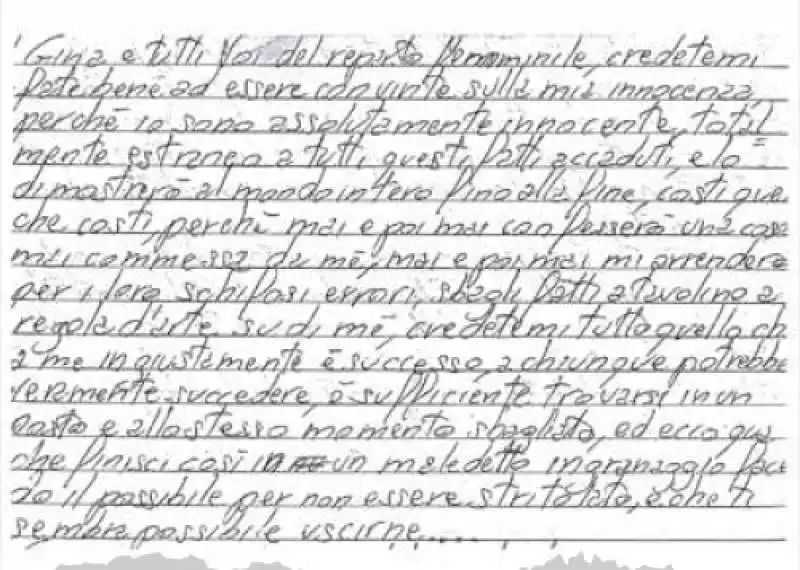 Gina e tutti Voi del reparto femminile, credetemi
fate bene ad essere convinte sulla mia innocenza,
perchè io sono assolutamente innocente, total=
mente estraneo a tutti questi fatti accaduti, e lo
dimostrerò al mondo intero fino alla fine, costi quel
che costi, perchè mai e poi mai confesserò una cosa
mai commessa da me, mai e poi mai mi arrenderò
per i loro schifosi errori, sbagli fatti a tavolino a
regola d'arte su di me, credetemi tutto quello ch
a me ingiustamente è successo, a chiunque potrebbe
veramente succedere, è sufficiente trovarsi in un
posto e allo stesso momento sbagliato, ed ecco qua
che finisci così in un maledetto ingranaggio
il possibile per non essere stritolato, e che ti
sembra possibile uscirne.....